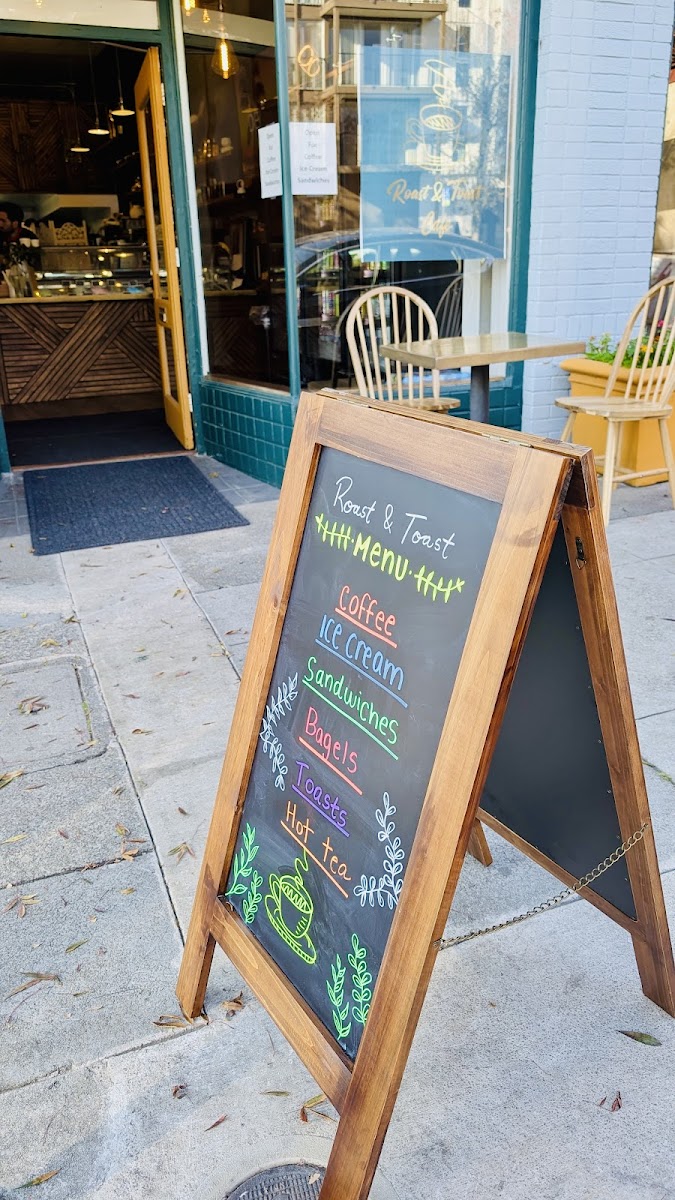 Open
For
Coffee
Ice Cream
Sandwiches
Roast & Toast
Cafe
Roast & Toast
Menu
Coffee
Ice Cream
Sandwiches
Bagels
Toasts
Hot tea